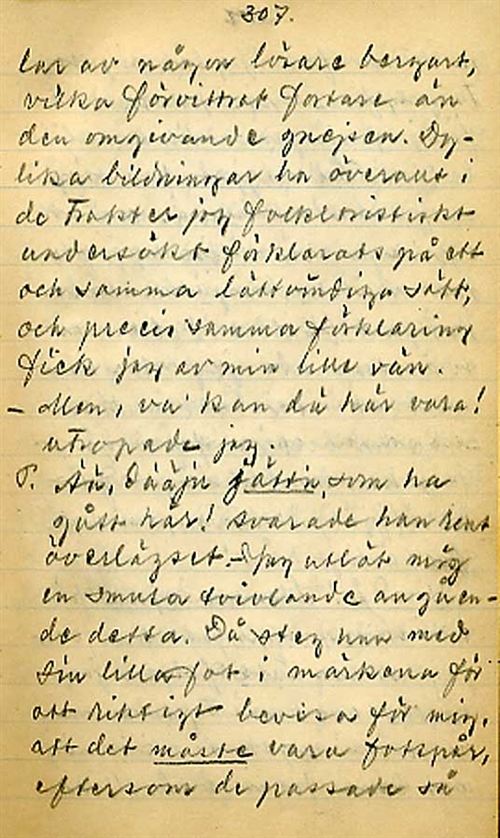 307.
lar av någon lösare bergart,
vilka förvittrat fortare än
den omgivande gnejsen. Dy-
lika bildningar ha överallt i
de trakter jag folkloristiskt
undersökt förklarats på ett
och samma lättvindiga sätt,
och precis samma förklaring
fick jag av min lille vän.
- Men, va' kan dä här vara!
utropade jag.
Ää, dääju jättn, som ha
gått här! svarade han rent
överlägset. - Jag utlät mig
en smula tvivlande angåen-
de detta. Då steg han med
sin lilla fot i märkena för
att riktigt bevisa för mig,
att det måste vara fotspår,
eftersom de passade så